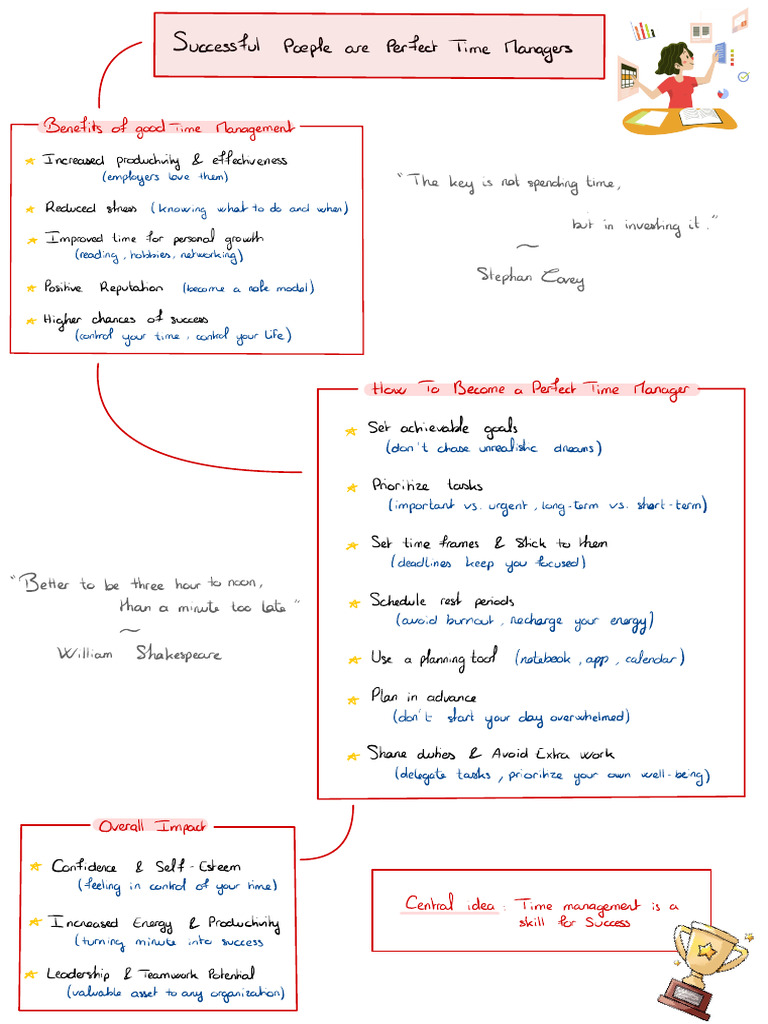 Successful People are Perfect Time Managers
Benefits of good Time Management
Increased productivity & effectiveness
(employers love them)
Reduced stress (knowing what to do and when)
Improved time for personal growth
(reading, hobbies, networking)
Positive Reputation (become a role model)
Higher chances of success
(control your time, control your life)
"The key is not spending time,
but in investing it."
~
Stephan Covey
How To Become a Perfect Time Manager
Set achievable goals
(don't chase unrealistic dreams)
Prioritize tasks
(important vs. urgent, long-term vs. short-term)
Set time frames & Stick to them
(deadlines keep you focused)
Schedule rest periods
(avoid burnout, recharge your energy)
Use a planning tool (notebook, app, calendar)
Plan in advance
(don't start your day overwhelmed)
Share duties & Avoid Extra work
(delegate tasks, prioritize your own well-being)
"Better to be three hour to noon,
than a minute too late"
~
William Shakespeare
Overall Impact
Confidence & Self-Esteem
(feeling in control of your time)
Increased Energy & Productivity
(turning minute into success
Leadership & Teamwork Potential
(valuable asset to any organization)
Central idea: Time management is a
skill for Success